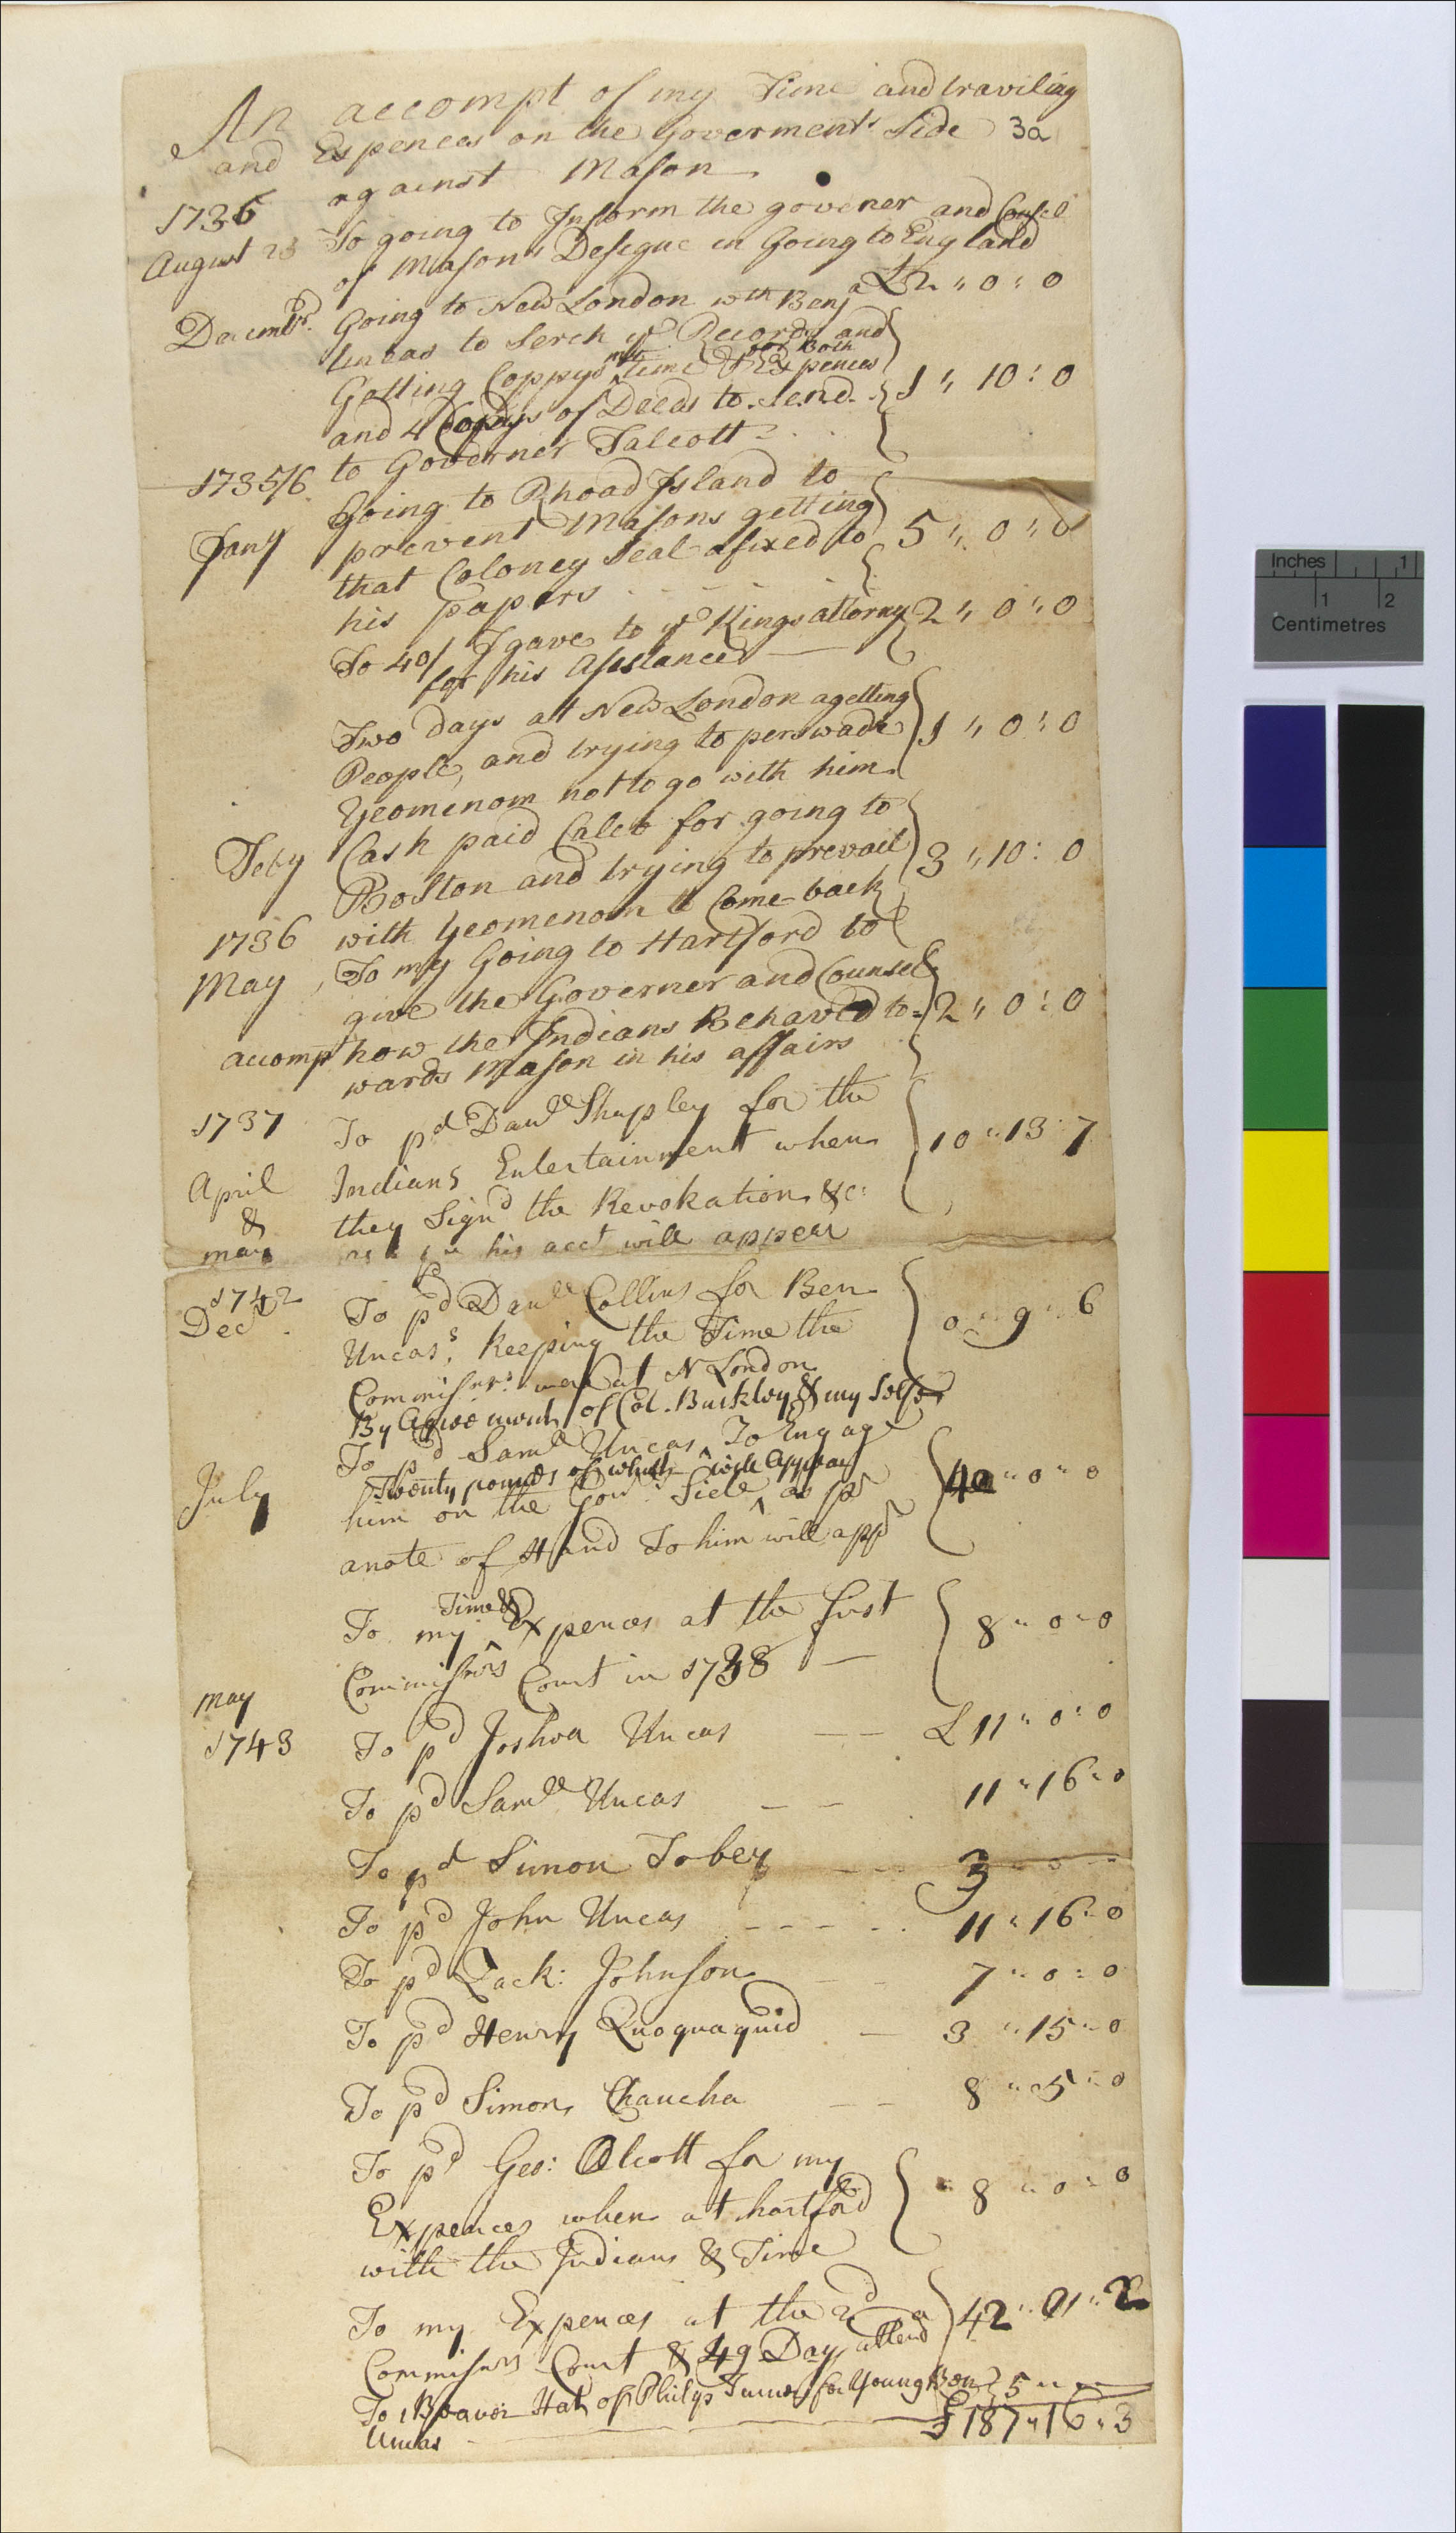 An accompt of my Time and traviling
and Expences on the Goverments Side 3a
against Mason
1736
August 23 To going to Inform the govener and Counsel
of Masons Desigue in Going to England
a £2 " 0 : 0
Decembr. Going to New London wth Benj
Uncas to Serch ye Records and
for Both
Getting Coppys my time & Expences
and 4 Copys of Deeds to Send 1 " 10 : 0
to Governer Talcott
1735/6
Jany
Going to Rhoad Island to
prevent Masons getting
that Coloney Seal afixed to 5 " 0 " 0
his papers
To 40/ I gave to ye Kings attorny 2 " 0 " 0
for his Assistance
Two days at New London agetting
People, and trying to perswade 1 " 0 : 0
Yeomenom not to go with him
Feby Cash paid Caleb for going to
Boston and trying to prevail 3 " 10 : 0
with Yeomenom to Come back
1736
May To my Going to Hartford to
give the Governer and Counsel
accompt how the Indians Behaved to- 2 " 0 : 0
wards Mason in his affairs
1737 To pd Danll Shapley for the
April Indians Entertainment when 10 " 13 " 7
& they Signd the Revokation &c:
may as his acct will appear
1742
Decr To pd Danll Collins for Ben
Uncas's Keeping the Time the 0 " 9 " 6
Commissnrs: were at N London
By Agreement of Col. Buckley & my Selfe
July To pd Samll Uncas To Engage
Twenty pounds of which will Appear
him on the Govr Side as pr 40 " 0 " 0
anote of Hand To him will appr
Time &
To my Expences at the first 8 " 0 " 0
Commissnrs Court in 1738
May
1743 To pd Joshua Uncas £ 11 " 0 " 0
To pd Samll Uncas 11 " 16 " 0
To pd Simon Tobey 3 " 0 "
To pd John Uncas 11 " 16 " 0
To pd Zack: Johnson 7 " 0 : 0
To pd Henry Quoquaquid 3 " 15 " 0
To pd Simon Chaucha 8 " 5 " 0
To pd Geo: Olcott for my
Expences when at hartford 8 " 0 " 0
with the Indians & Time
To my Expences at the 2d 42 " 01 " 2
Commisnrs Court & 49 Days attend
To 1 Beaver Hat of Philip Turner for Young Ben 5 " "
Uncas £ 187 " 16 " 3
Inches 1
1 2
Centimetres